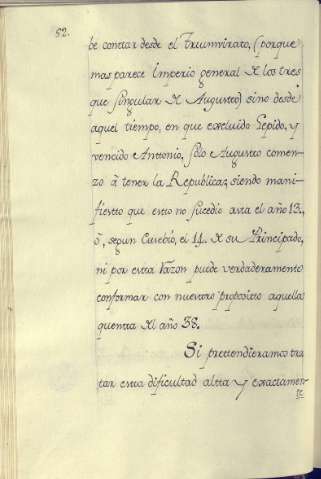 52.
be contar desde el Triumvirato, (porque
mas parece Imperio general de los tres
que singular de Augusto) sino desde
aquel tiempo, en que excluido Lepido, y
vencido Antonio, solo Augusto comen-
zo á tener la Republica; siendo mani-
fiesto que esto no sucedio asta el año 13.,
ô, segun Eusebio, el 14. de su Principado,
ni por esta razon puede verdaderamente
conformar con nuestro proposito aquella
quenta del año 38.
Si pretendieramos tra
tar esta dificultad alta y exactamen-
te